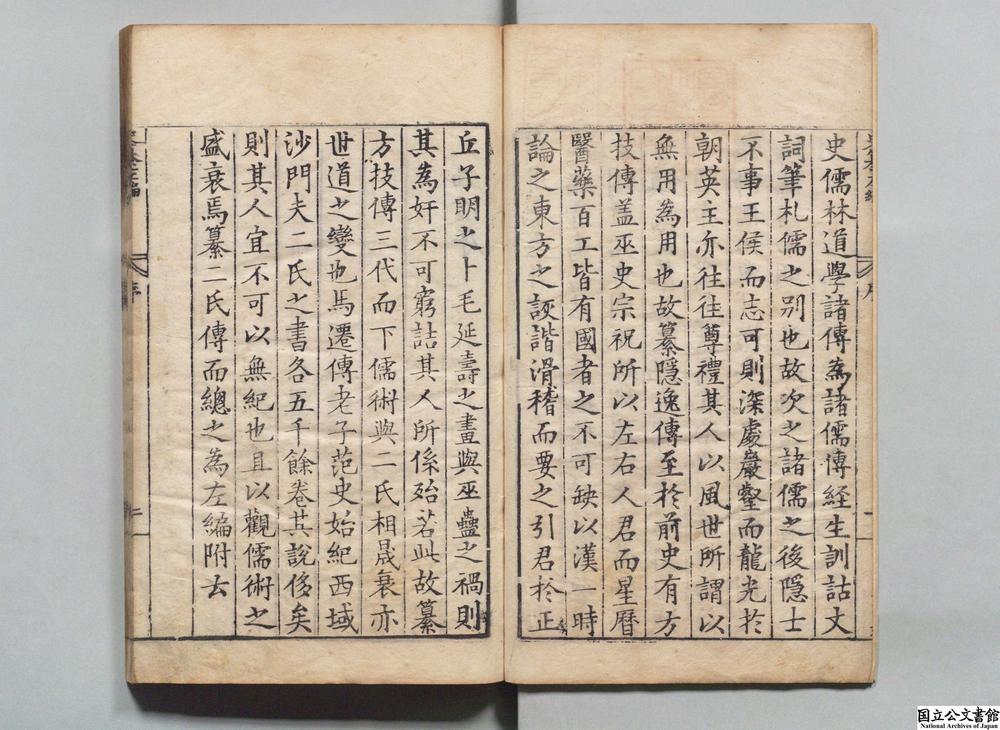 史儒林道學諸傳為諸儒傳經生訓詁文
詞筆札儒之别也故次之諸儒之後隱士
不事王侯而志可則深處巖壑而龍光於
朝英主亦往往尊禮其人以風世所謂以
無用為用也故纂隱逸傳至於前史有方
技傳盖巫史宗祝所以左右人君而星曆
醫藥百工皆有國者之不可缺以漢一時
論之東方之詼諧滑稽而要之引君於正
丘子明之卜毛延壽之畫與巫蠱之禍則
其為奸不可窮詰其人所係殆若此故纂
方技傳三代而下儒術與二氏相晟衰亦
世道之變也馬遷傳老子范史始紀西域
沙門夫二氏之書各五千餘卷其說侈矣
則其人宜不可以無紀也且以觀儒術之
盛衰焉纂二氏傳而總之為左編附去
序
二
国立公文書館
National Archives of Japan